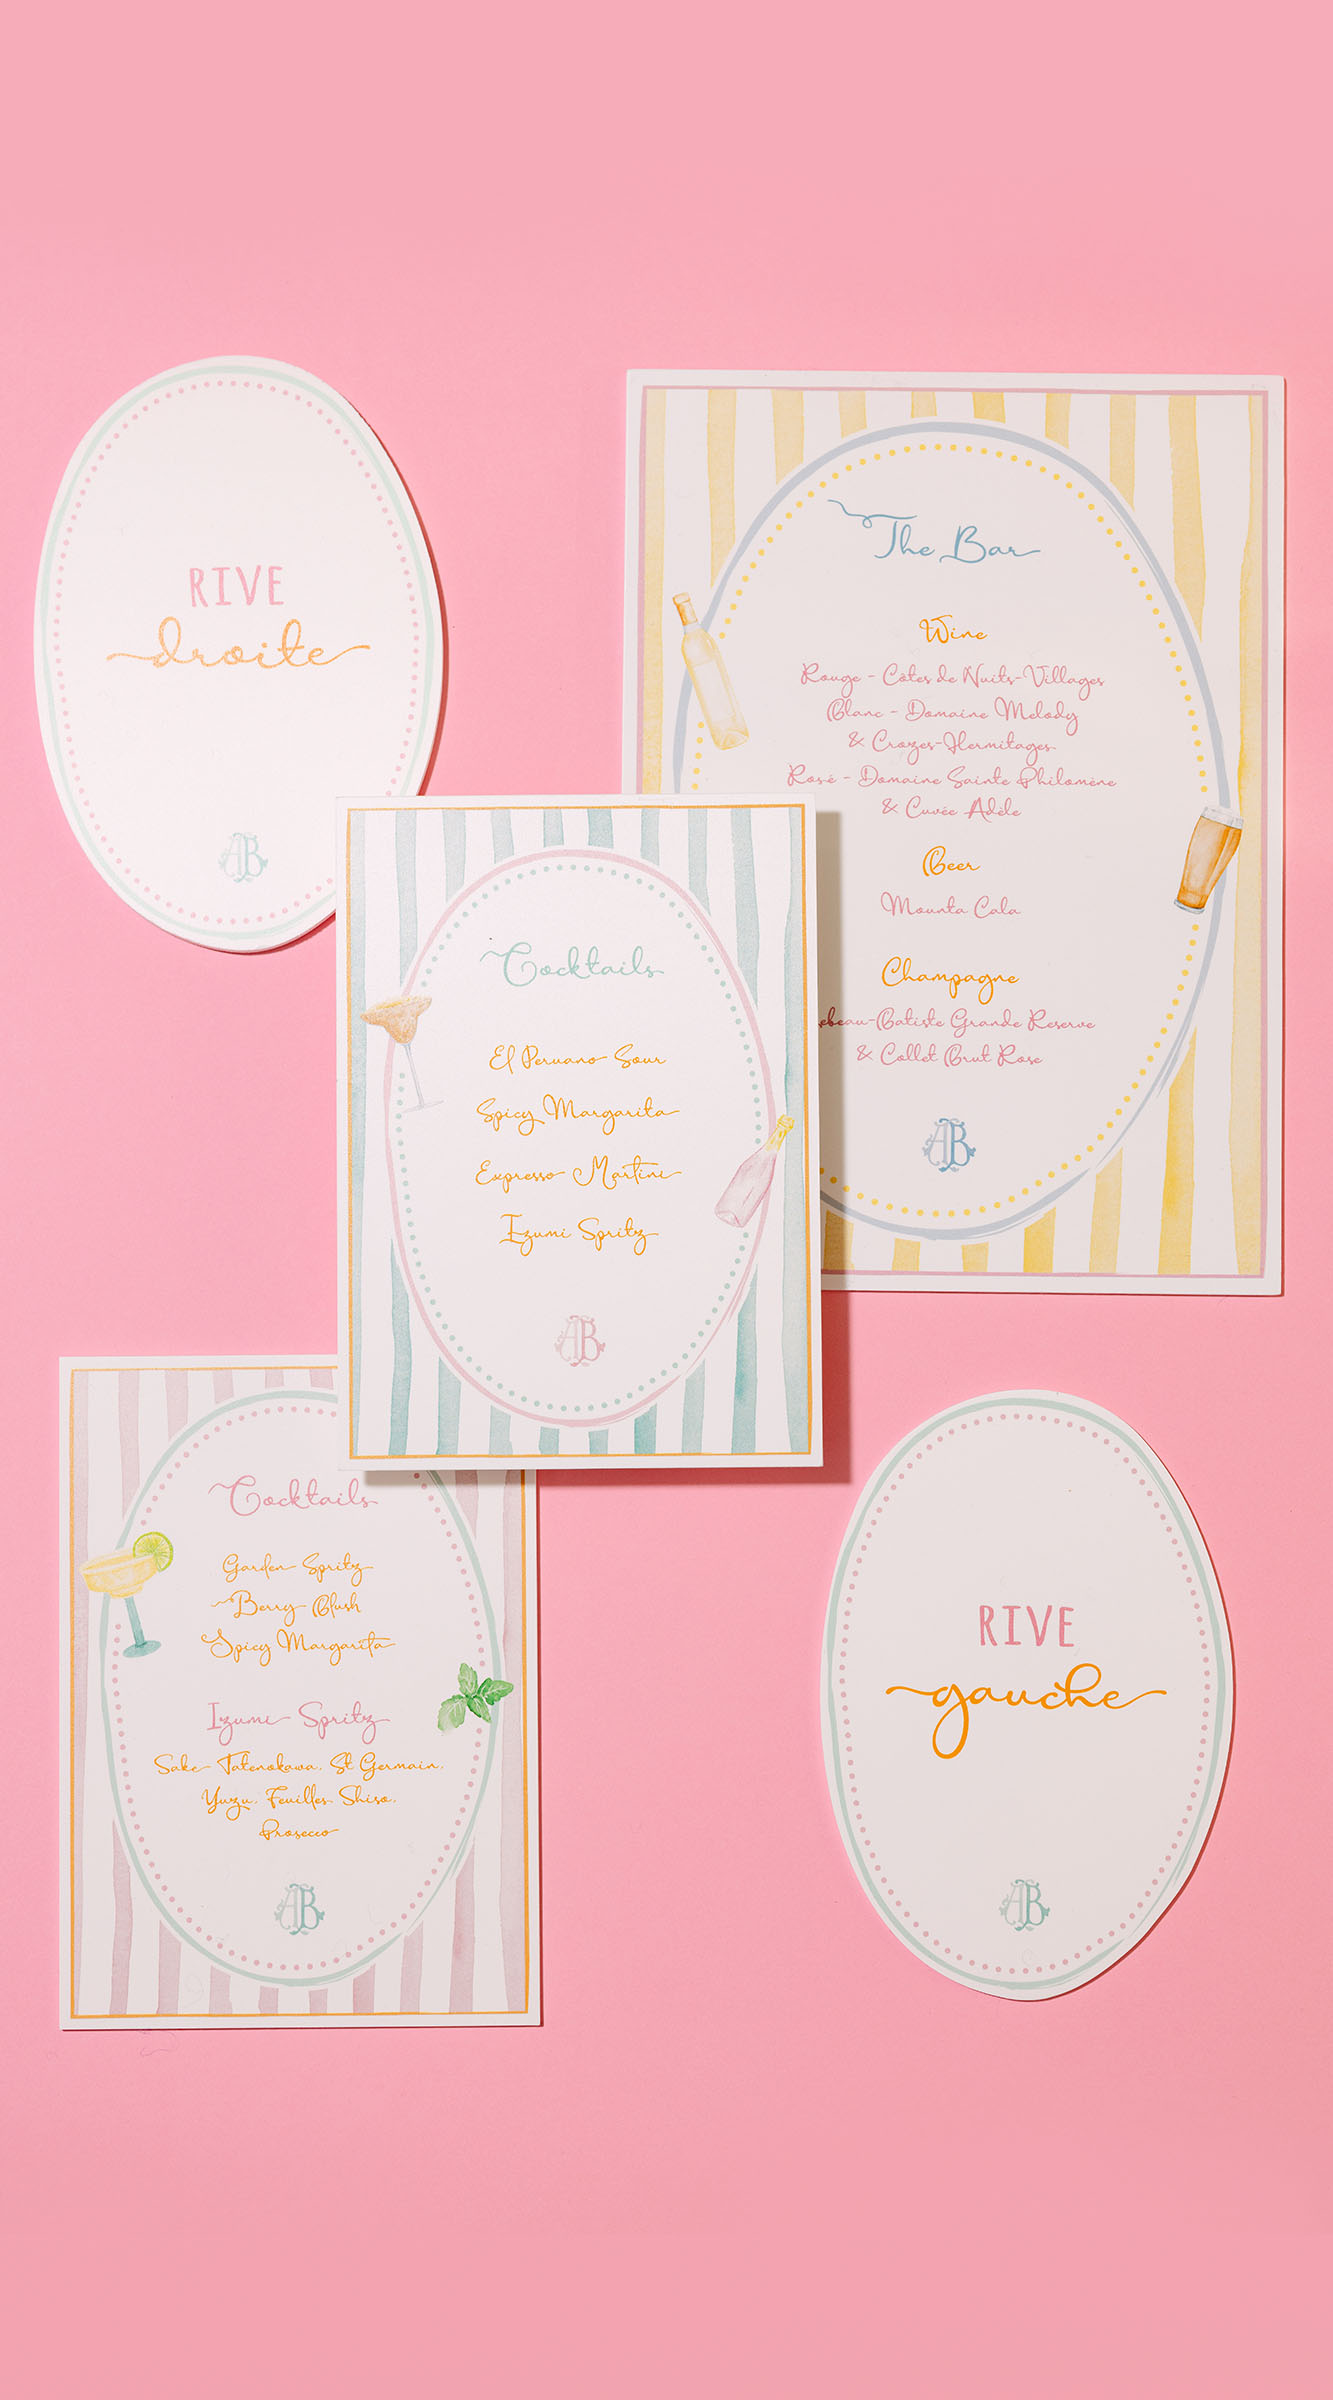 RIVE
droite
AB
The Bar
Wine
Rouge - Côtes de Nuits-Villages
Blanc - Domaine Melody
& Crozes-Hermitages
Rosé - Domaine Sainte Philomène
& Cuvée Adèle
Beer
Mounta Cala
Champagne
ebeau-Batiste Grande Reserve
& Collet Brut Rose
AB
Cocktails
El Peruano Sour
Spicy Margarita
Expresso Martini
Izumi Spritz
AB
Cocktails
Garden Spritz
Berry Blush
Spicy Margarita
Izumi Spritz
Sake Tatenokawa, St Germain,
Yuzu, Feuilles Shiso,
Prosecco
AB
RIVE
gauche
AB